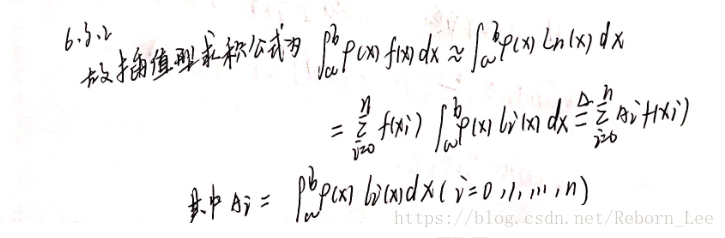 6.3.2
故插值型求积公式为 ∫_a^b ρ(x) f(x) dx ≈ ∫_a^b ρ(x) Ln(x) dx
= Σ_{i=0}^n f(xi) ∫_a^b ρ(x) li(x) dx ≜ Σ_{i=0}^n Ai f(xi)
其中 Ai = ∫_a^b ρ(x) li(x) dx (i=0,1,…,n)
https://blog.csdn.net/Reborn_Lee